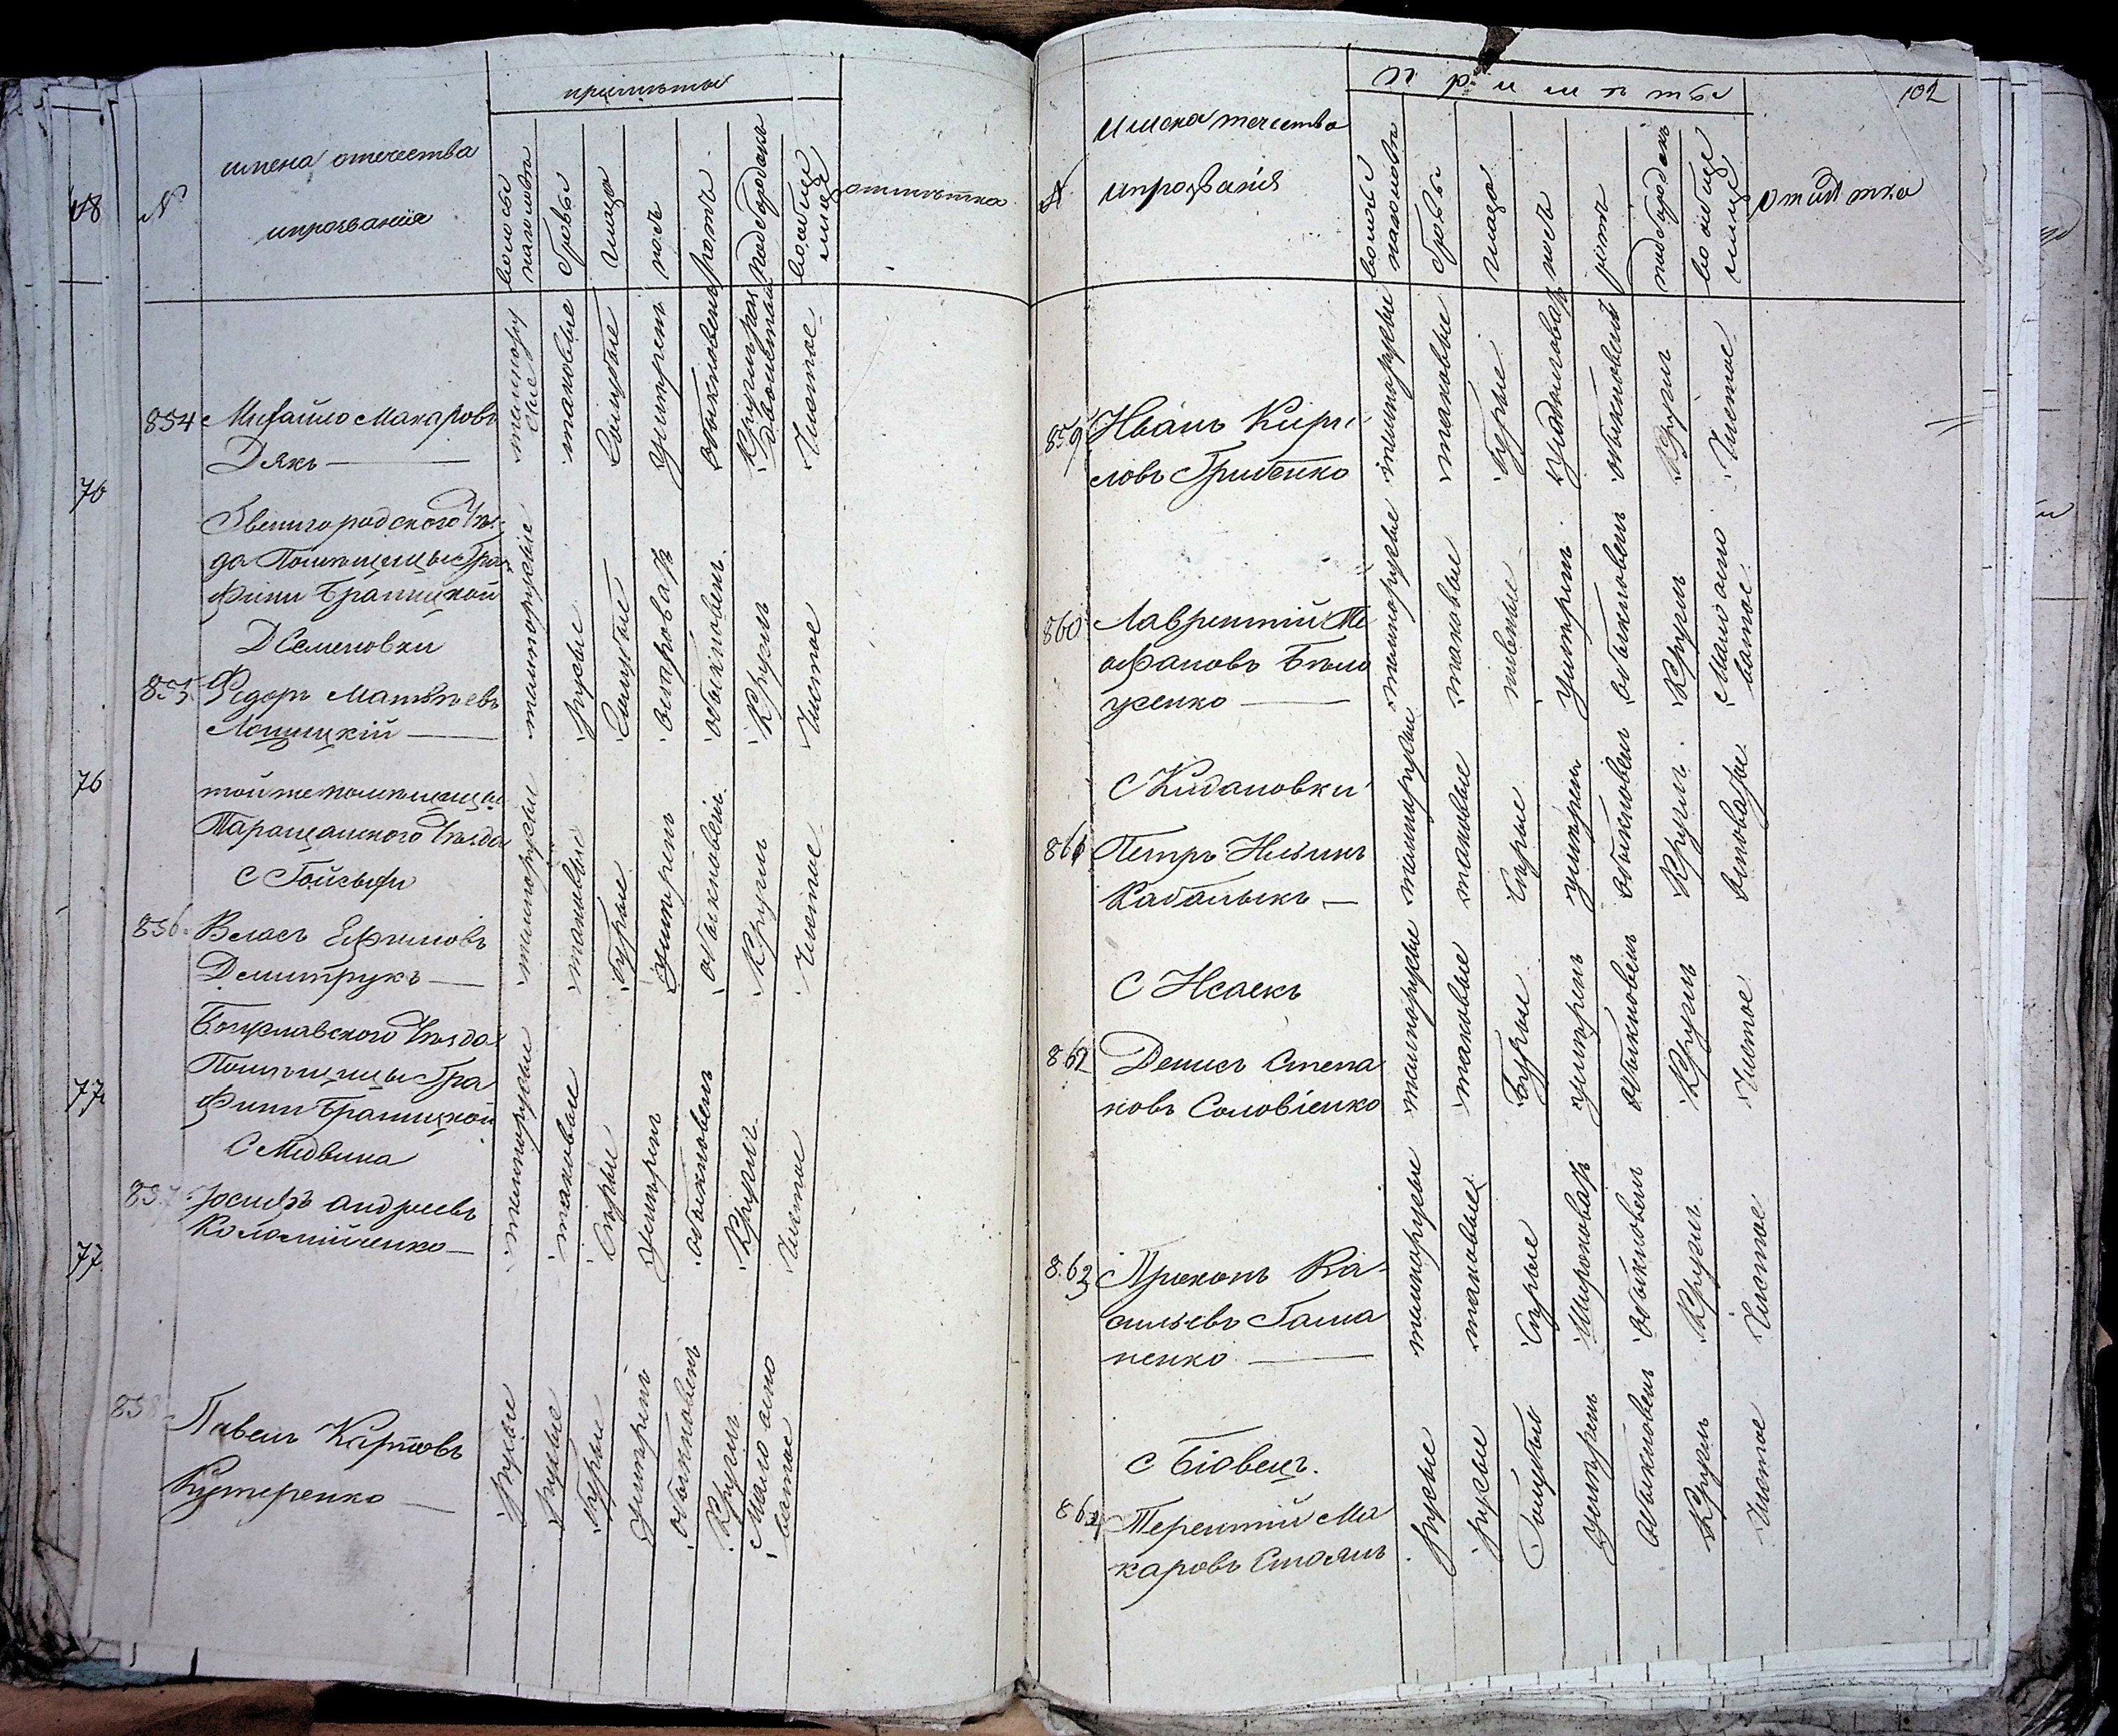 примѣты
N
имена отечества
ипрозванія
волосы
наголовѣ
бровы
глаза
носъ
ротъ
подбородокъ
вообще
лице
отмѣтка
854 Михайло Макаровъ
Дякъ
темнору
сые
таковые
Голубые
умѣренъ
обыкновенъ
Кругл
Чистое
Звенигородскаго Уѣз
да Помѣщицы Гра
фини Браницкой
Д Семеновки
855. Федоръ Матвѣевъ
Лопицкій
темнорусые
русые
Голубые
обыкновенъ
Круглъ
Чистое
тойже помѣщицы
Таращанского Уѣзда
С Гойсыхи
856. Власъ Ефимовъ
Демитрукъ
темнорусые
таковые
бурые
умѣренъ
обыкновенъ
Круглъ
Чистое
Богуславского Уѣзда
Помѣщицы Гра
фини Браницкой
С Медвина
857 Іосифъ Андреевъ
Коломійченко
темнорусые
таковые
Сѣрые
умѣренъ
обыкновенъ
Круглъ
Чистое
858 Павелъ Карповъ
Кутеренко
русые
русые
бурые
умѣренъ
обыкновенъ
Круглъ
Мало оспо
ватое
48
76
76
77
77
102
Примѣты
N
имена течества
ипрозванія
волосы
наголовѣ
бровы
глаза
носъ
ротъ
подбородокъ
во обще
лице
отмѣтка
859 Иванъ Кири
ловъ Грибенко
темнорусые
таковые
бурые
обыкновенъ
Круглъ
Чистое
860 Лаврентій Те
офановъ Било
усенко
темнорусые
таковые
умѣренъ
обыкновенъ
Круглъ
Мало оспо
ватое
С Кидановки
861 Петръ Ильинъ
Кабалыкъ
темнорусые
таковые
Сѣрые
умѣренъ
обыкновенъ
Круглъ
С Исаекъ
862 Денисъ Степа
новъ Соловіенко
темнорусые
таковые
Бурые
умѣренъ
обыкновенъ
Круглъ
Чистое
863 Прокопъ Ва
сильевъ Гама
ненко
темнорусые
таковые
Сѣрые
Широковатъ
обыкновенъ
Круглъ
Чистое
С Біовецъ.
864 Терентій Ма
каровъ Стоянъ
русые
русые
Голубые
умѣренъ
обыкновенъ
Круглъ
Чистое